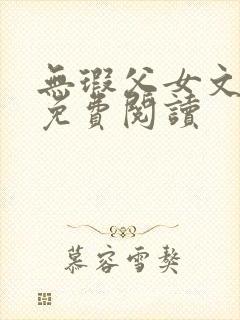 無瑕父女文
免費閱讀
慕容雪獒